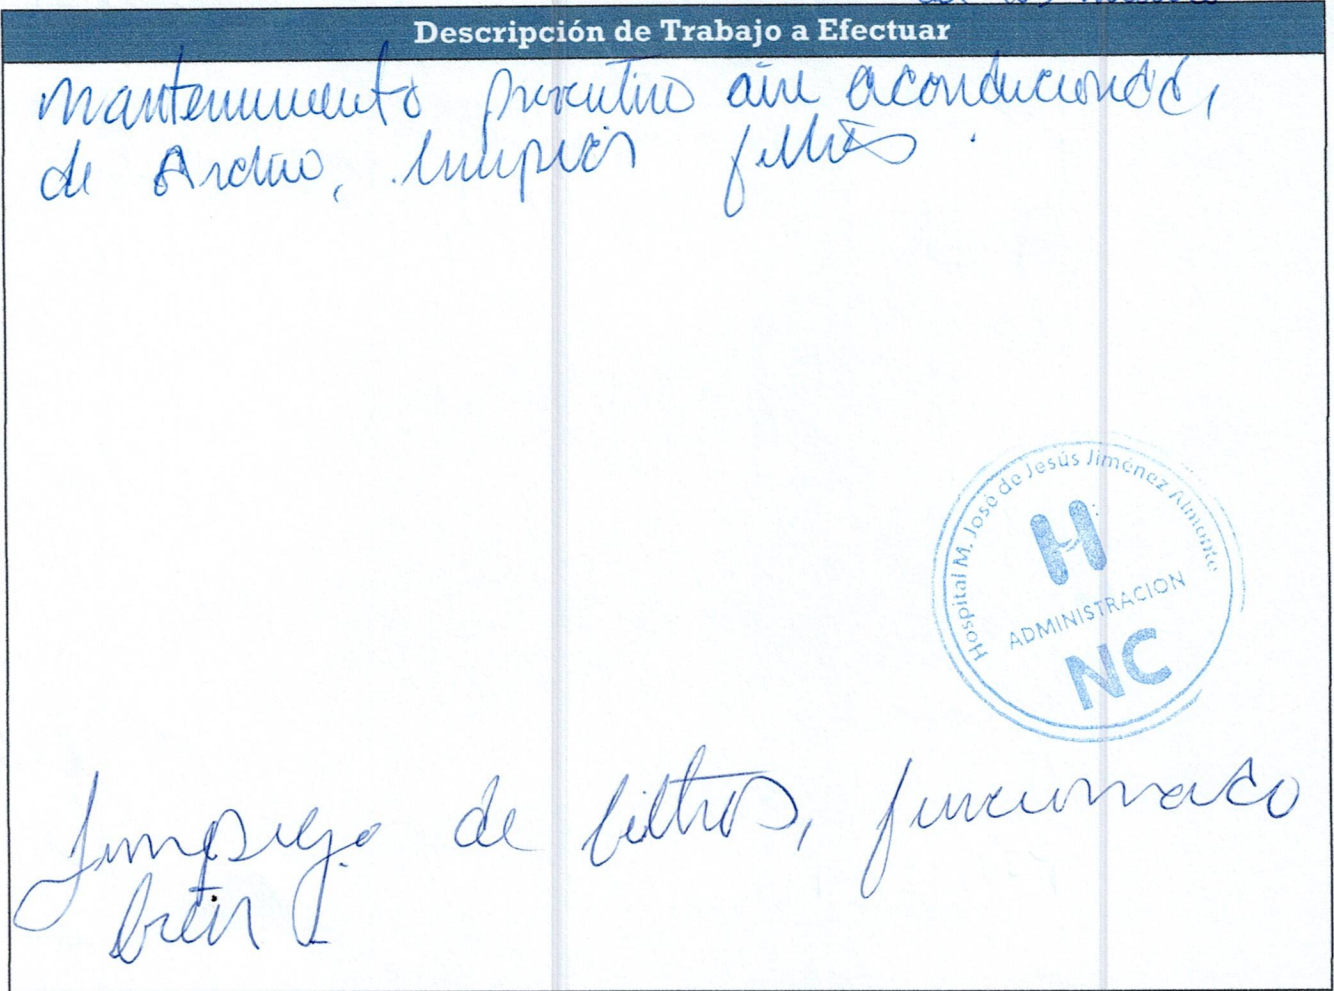 Descripción de Trabajo a Efectuar
mantenimiento preventivo aire acondicionado,
de Archivo, limpiar filtros.
Hospital M. José de Jesús Jiménez Almonte
H
ADMINISTRACION
NC
Limpieza de filtros, funcionando
bien